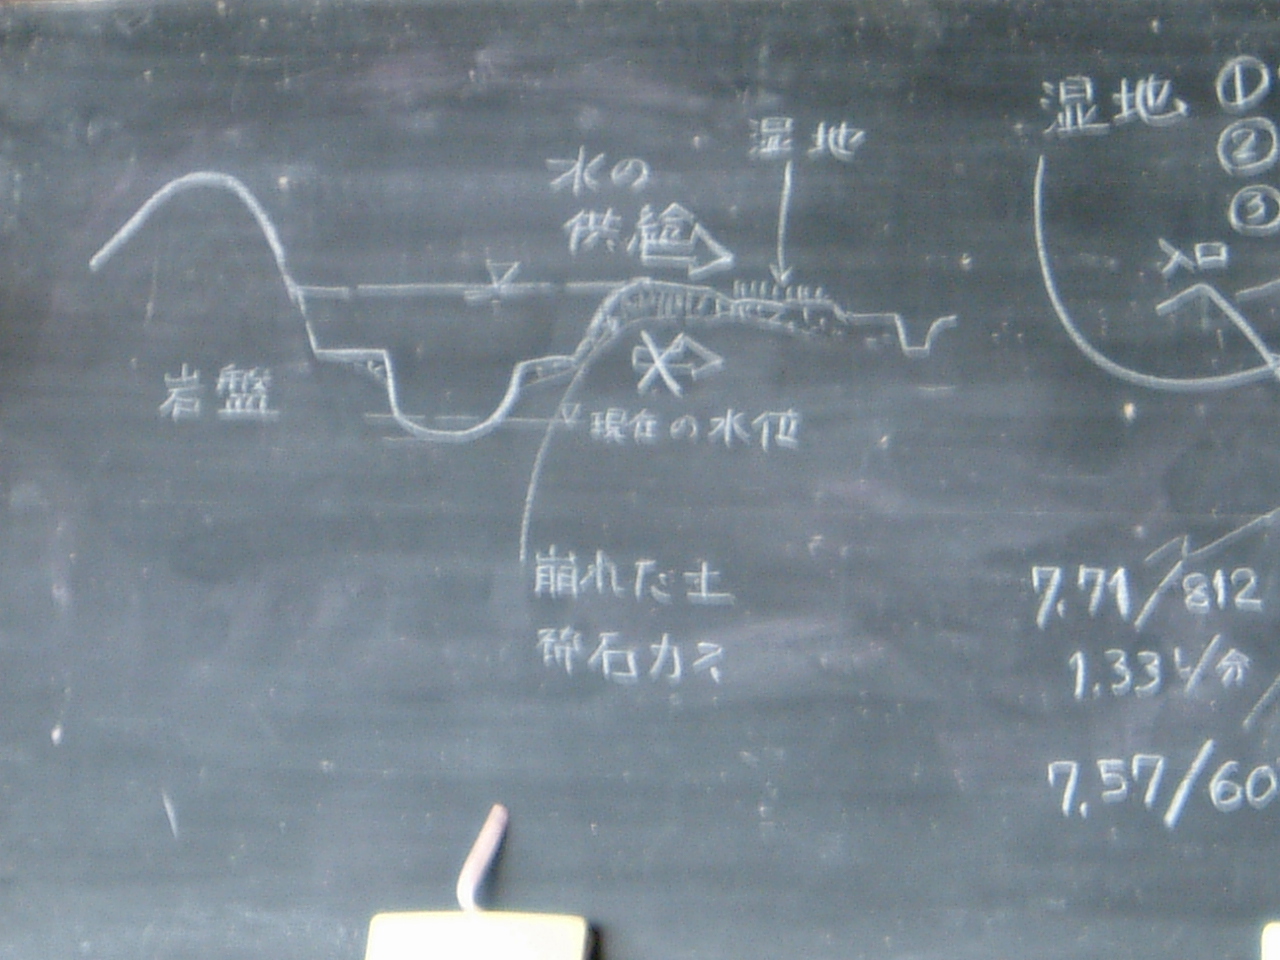 湿地
水の
供給
岩盤
現在の水位
崩れた土
砕石カス
湿地 ①
②
③
入口
7.71/812
1.33 L/分
7.57/60